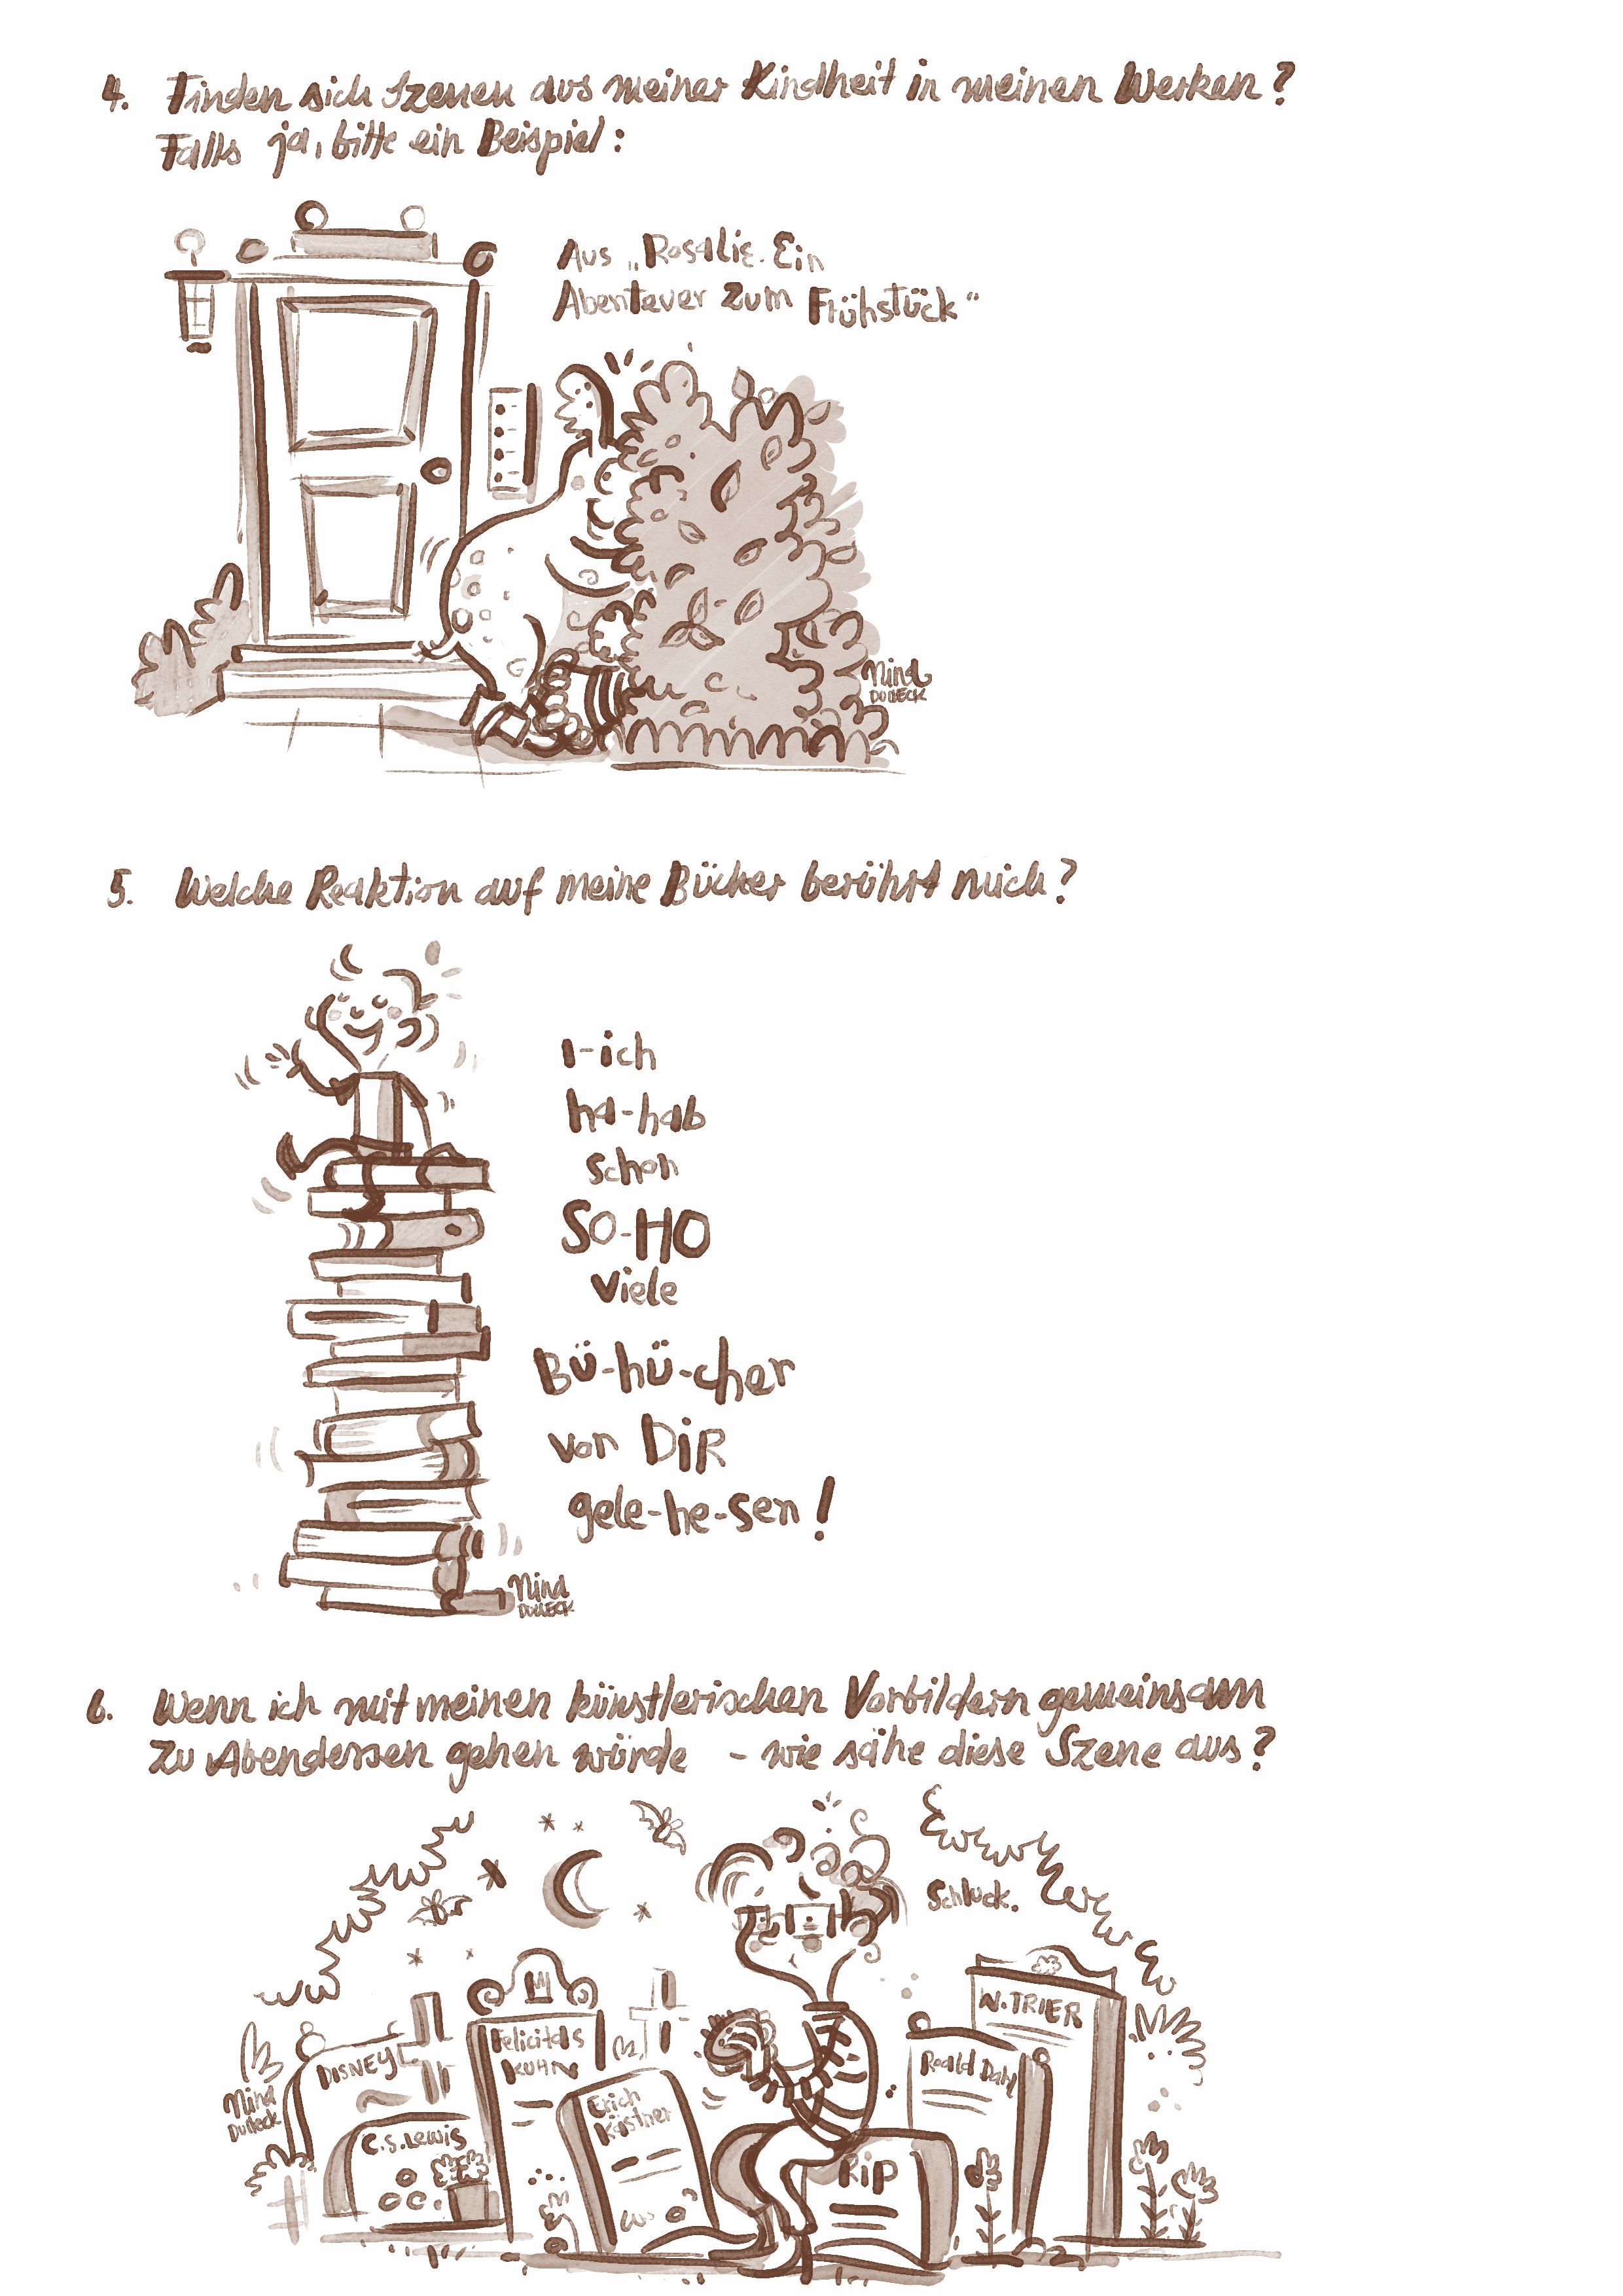 4. Finden sich Szenen aus meiner Kindheit in meinen Werken?
Falls ja, bitte ein Beispiel:
Aus „Rosalie. Ein
Abenteuer zum Frühstück“
Nina
DULLECK
5. Welche Reaktion auf meine Bücher berührt mich?
I-ich
ha-hab
schon
SO-HO
viele
Bü-hü-cher
von DIR
gele-he-sen!
Nina
DULLECK
6. Wenn ich mit meinen künstlerischen Vorbildern gemeinsam
zu Abendessen gehen würde - wie sähe diese Szene aus?
Schluck.
W. TRIER
Felicitas
KUHN
DISNEY
Roald Dahl
Erich
Kästner
Nina
Dulleck
C.S. Lewis
RIP